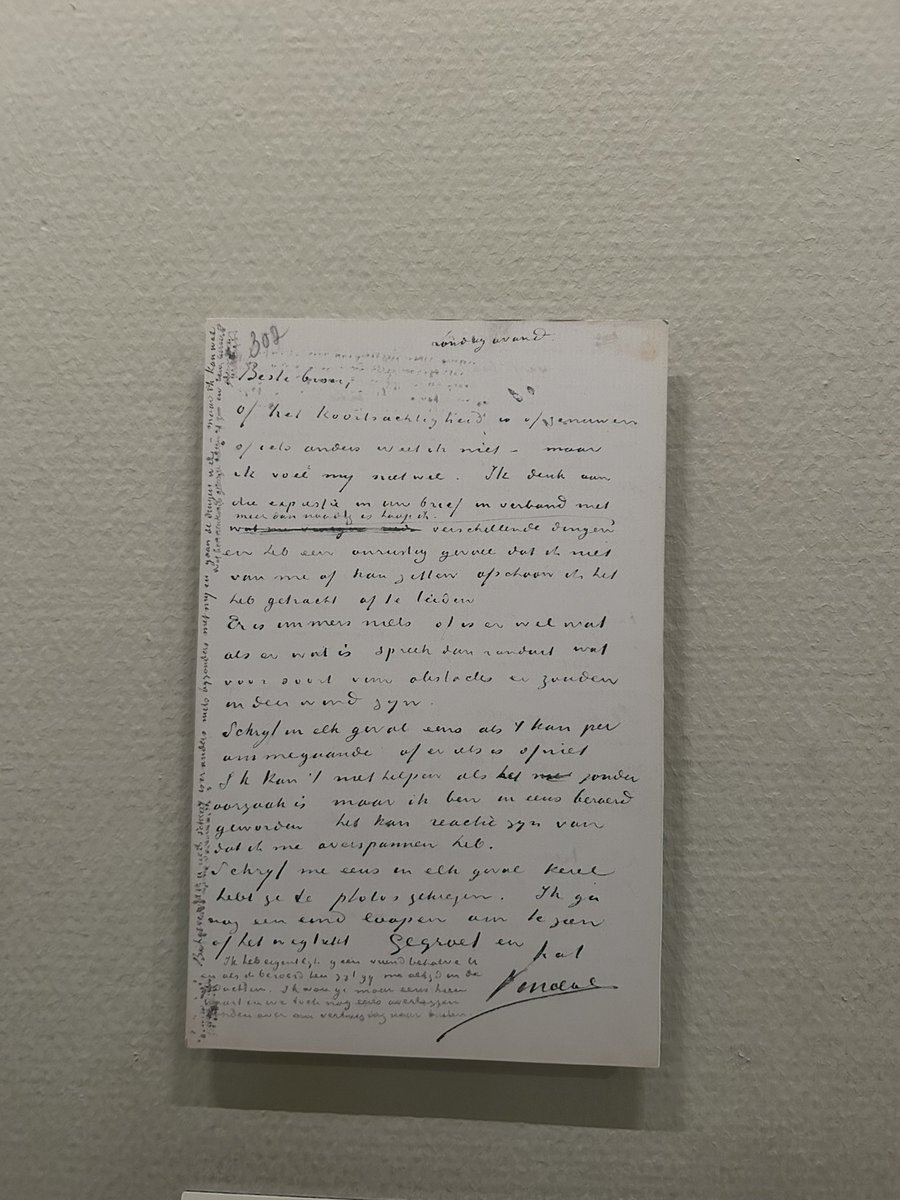 302
zondag avond
Beste broer,
of het koortsachtigheid is of zenuwen
of iets anders weet ik niet – maar
ik voel my niet wel. Ik denk aan
die expressie in uw brief in verband met
meer dan noodig is hoop ik.
verschillende dingen
en heb een onrustig gevoel dat ik niet
van me af kan zetten ofschoon ik het
heb getracht af te leiden
Er is immers niets of is er wel wat
als er wat is spreek dan ronduit wat
voor soort van obstacles er zouden
in den wind zyn.
Schryf in elk geval eens als 't kan per
ommegaande of er iets is of niet
Ik kan 't niet helpen als het zonder
oorzaak is maar ik ben in eens beroerd
geworden het kan reactie zyn van
dat ik me overspannen heb.
Schryf me eens in elk geval kerel
hebt ge de photos gekregen. Ik ga
nog een eind loopen om te zien
of het wegtrekt Gegroet en
t.at
Vincent
Ik heb eigenlijk geen vriend behalve U
en als ik beroerd ben zyt gy me altyd in de
gedachten. Ik wou ge maar eens hier
waart en we toch nog eens overleggen
konden over een verhuizing naar buiten
niets byzonders met my en gaan de dingen wel – maar ik kan wel